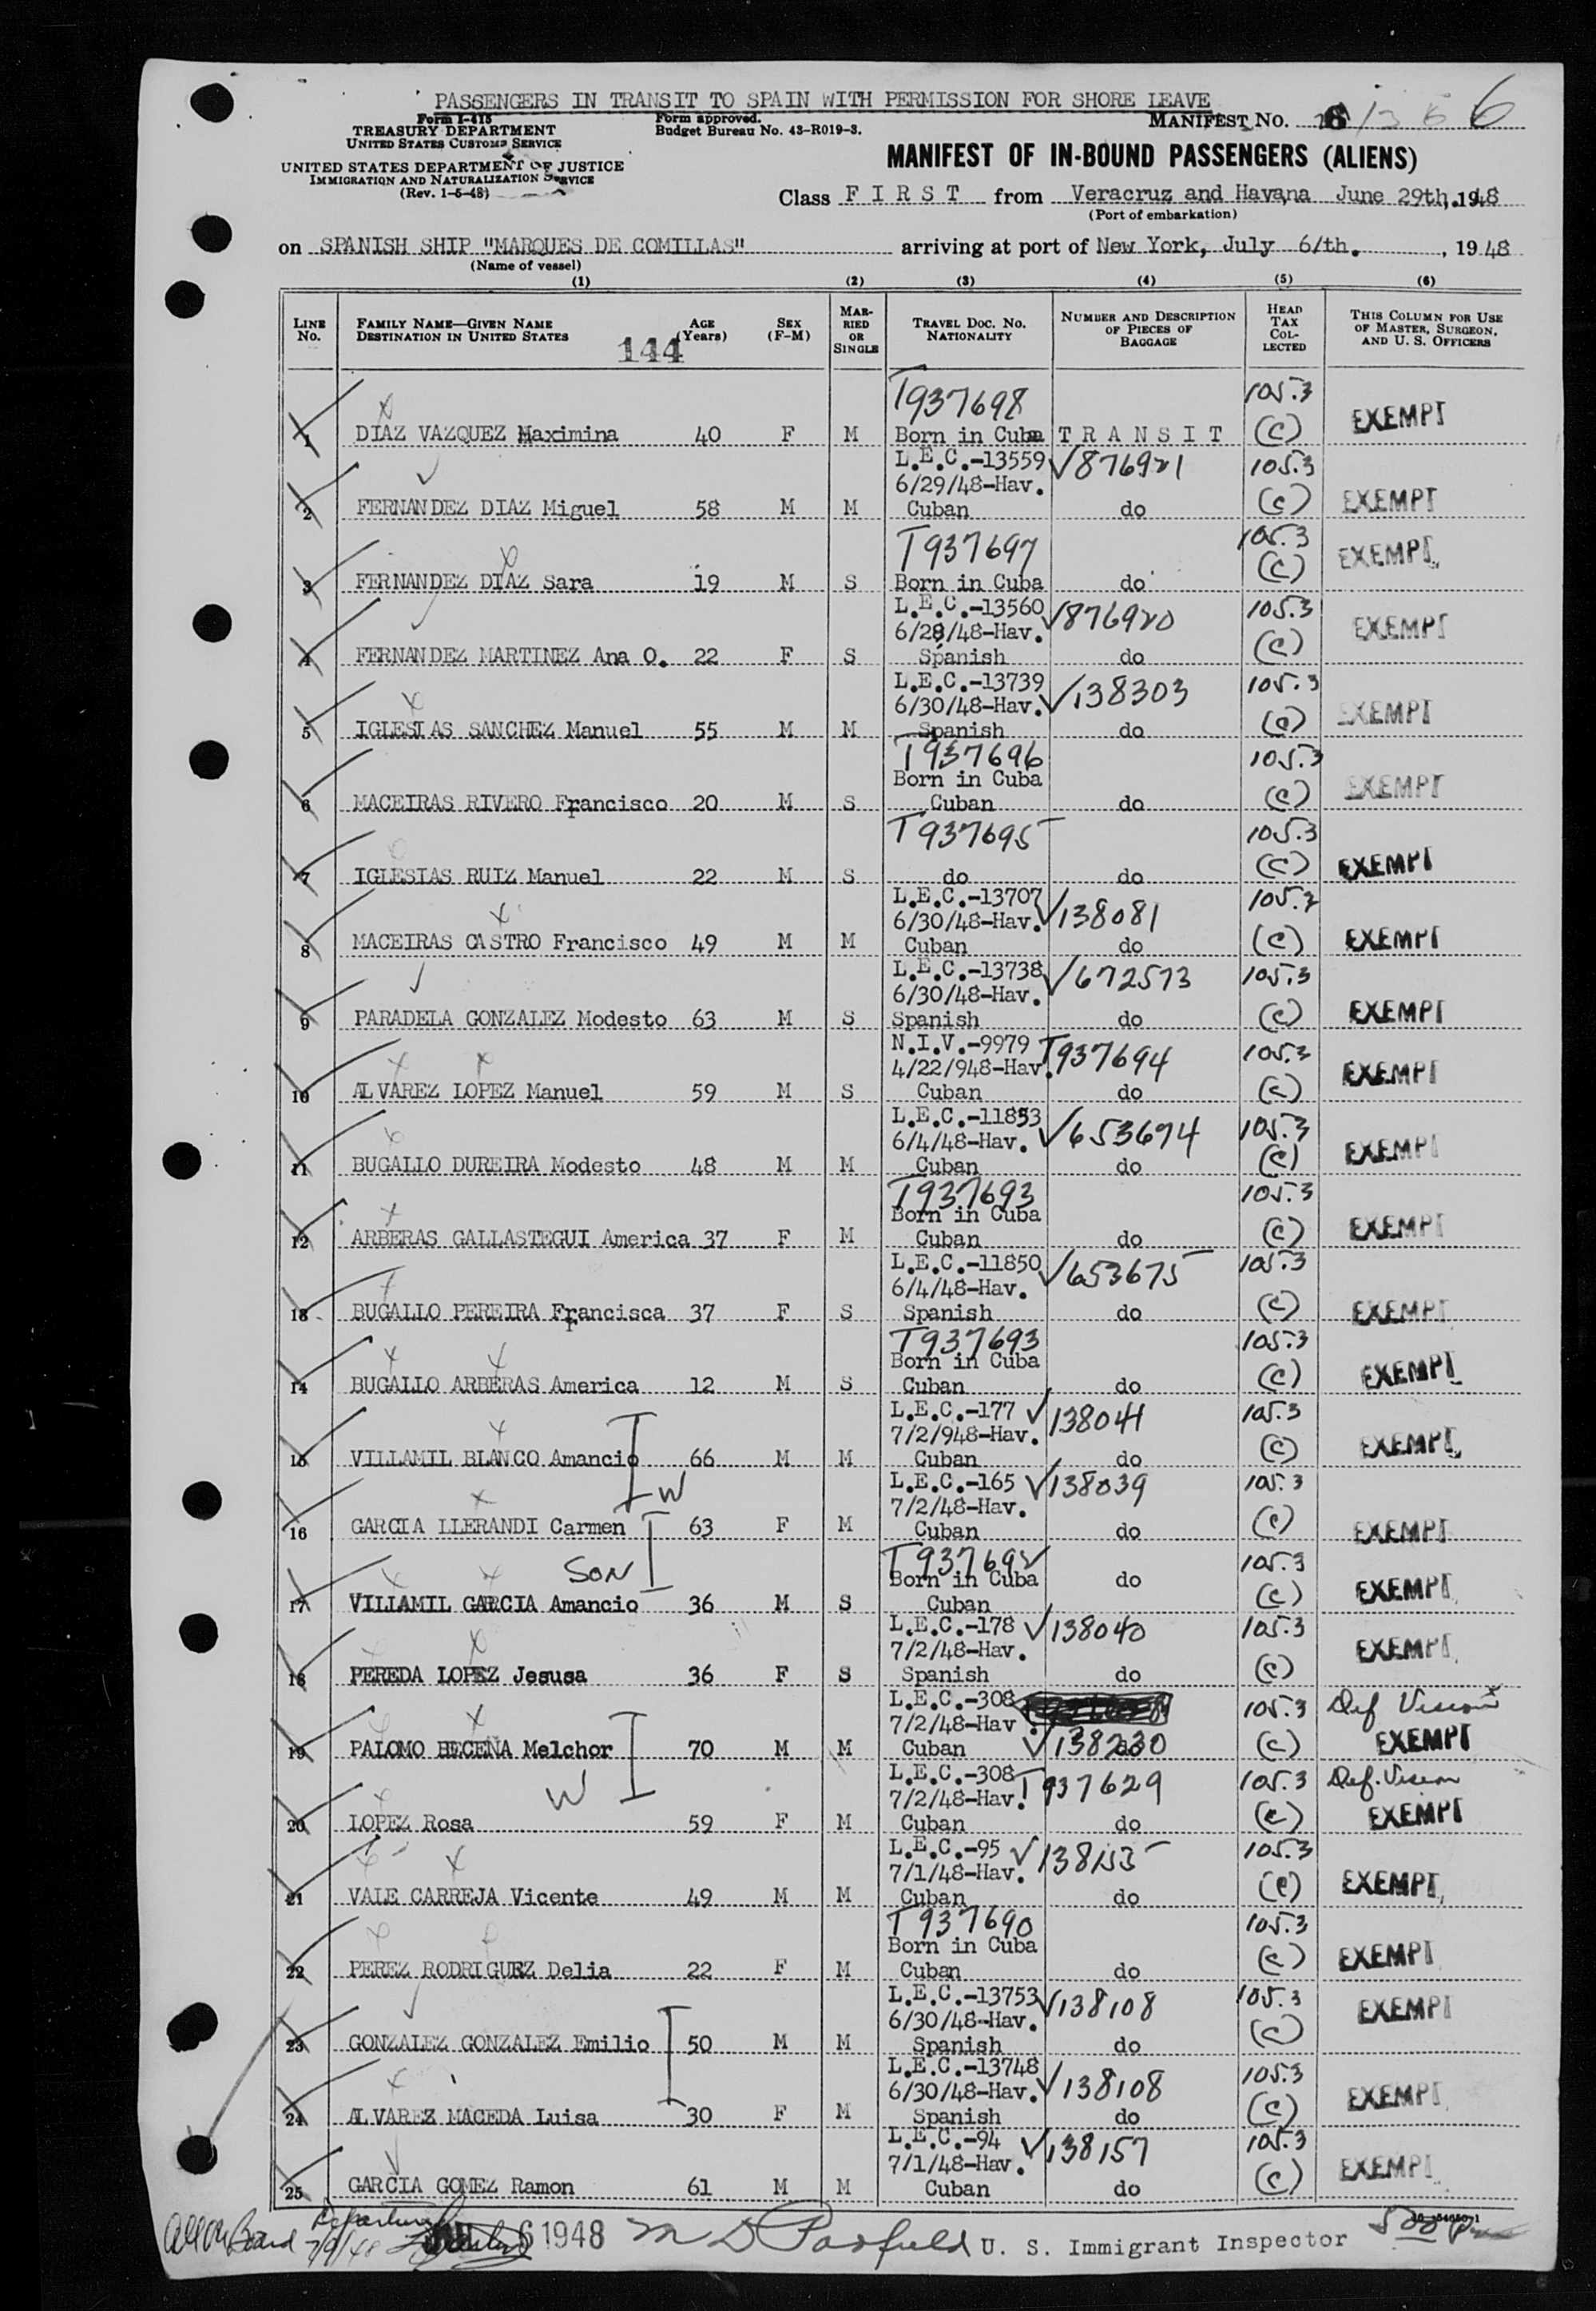 PASSENGERS IN TRANSIT TO SPAIN WITH PERMISSION FOR SHORE LEAVE
Form I-415
TREASURY DEPARTMENT
UNITED STATES CUSTOMS SERVICE
Form approved.
Budget Bureau No. 43-R019-3.
MANIFEST No. 6
UNITED STATES DEPARTMENT OF JUSTICE
IMMIGRATION AND NATURALIZATION SERVICE
(Rev. 1-5-48)
MANIFEST OF IN-BOUND PASSENGERS (ALIENS)
Class F I R S T from Veracruz and Havana June 29th, 1948
(Port of embarkation)
on SPANISH SHIP "MARQUES DE COMILLAS" arriving at port of New York, July 6/th. , 1948
(Name of vessel)
(1) (2) (3) (4) (5) (6)
LINE No. FAMILY NAME—GIVEN NAME DESTINATION IN UNITED STATES AGE (Years) SEX (F-M) MARRIED OR SINGLE TRAVEL DOC. No. NATIONALITY NUMBER AND DESCRIPTION OF PIECES OF BAGGAGE HEAD TAX COLLECTED THIS COLUMN FOR USE OF MASTER, SURGEON, AND U. S. OFFICERS
144
T937698 105.3
1 DIAZ VAZQUEZ Maximina 40 F M Born in Cuba T R A N S I T (C) EXEMPT
L.E.C.-13559 √876921 105.3
6/29/48-Hav.
2 FERNANDEZ DIAZ Miguel 58 M M Cuban do (C) EXEMPT
T937697 105.3
3 FERNANDEZ DIAZ Sara 19 M S Born in Cuba do (C) EXEMPT
L.E.C.-13560 √876920 105.3
6/28/48-Hav.
4 FERNANDEZ MARTINEZ Ana O. 22 F S Spanish do (C) EXEMPT
L.E.C.-13739 105.3
6/30/48-Hav. √138303
5 IGLESIAS SANCHEZ Manuel 55 M M Spanish do (C) EXEMPT
T937696 105.3
Born in Cuba
6 MACEIRAS RIVERO Francisco 20 M S Cuban do (C) EXEMPT
T937695 105.3
7 IGLESIAS RUIZ Manuel 22 M S do do (C) EXEMPT
L.E.C.-13707 105.3
6/30/48-Hav. √138081
8 MACEIRAS CASTRO Francisco 49 M M Cuban do (C) EXEMPT
L.E.C.-13738 √672573 105.3
6/30/48-Hav.
9 PARADELA GONZALEZ Modesto 63 M S Spanish do (C) EXEMPT
N.I.V.-9979 T937694 105.3
4/22/948-Hav.
10 ALVAREZ LOPEZ Manuel 59 M S Cuban do (C) EXEMPT
L.E.C.-11853 105.3
6/4/48-Hav. √653694
11 BUGALLO DUREIRA Modesto 48 M M Cuban do (C) EXEMPT
T937693 105.3
Born in Cuba
12 ARBERAS GALLASTEGUI America 37 F M Cuban do (C) EXEMPT
L.E.C.-11850 105.3
6/4/48-Hav. √653675
13 BUGALLO PEREIRA Francisca 37 F S Spanish do (C) EXEMPT
T937693 105.3
Born in Cuba
14 BUGALLO ARBERAS America 12 M S Cuban do (C) EXEMPT
L.E.C.-177 √138041 105.3
7/2/948-Hav.
15 VILLAMIL BLANCO Amancio 66 M M Cuban do (C) EXEMPT
W L.E.C.-165 √138039 105.3
7/2/48-Hav.
16 GARCIA LLERANDI Carmen 63 F M Cuban do (C) EXEMPT
SON T937692 105.3
Born in Cuba do
17 VILLAMIL GARCIA Amancio 36 M S Cuban (C) EXEMPT
L.E.C.-178 √138040 105.3
7/2/48-Hav.
18 PEREDA LOPEZ Jesusa 36 F S Spanish do (C) EXEMPT
L.E.C.-308 105.3 Def Vision
7/2/48-Hav.
19 PALOMO BECEÑA Melchor 70 M M Cuban √138230 do (C) EXEMPT
L.E.C.-308 T937629 105.3 Def. Vision
W 7/2/48-Hav.
20 LOPEZ Rosa 59 F M Cuban do (C) EXEMPT
L.E.C.-95 √138155 105.3
7/1/48-Hav.
21 VALE CARREJA Vicente 49 M M Cuban do (C) EXEMPT
T937690 105.3
Born in Cuba
22 PEREZ RODRIGUEZ Delia 22 F M Cuban do (C) EXEMPT
L.E.C.-13753 √138108 105.3
6/30/48-Hav.
23 GONZALEZ GONZALEZ Emilio 50 M M Spanish do (C) EXEMPT
L.E.C.-13748 105.3
6/30/48-Hav. √138108
24 ALVAREZ MACEDA Luisa 30 F M Spanish do (C) EXEMPT
L.E.C.-94 √138157 105.3
7/1/48-Hav.
25 GARCIA GOMEZ Ramon 61 M M Cuban do (C) EXEMPT
Departure
7/9/48 6 1948 U. S. Immigrant Inspector